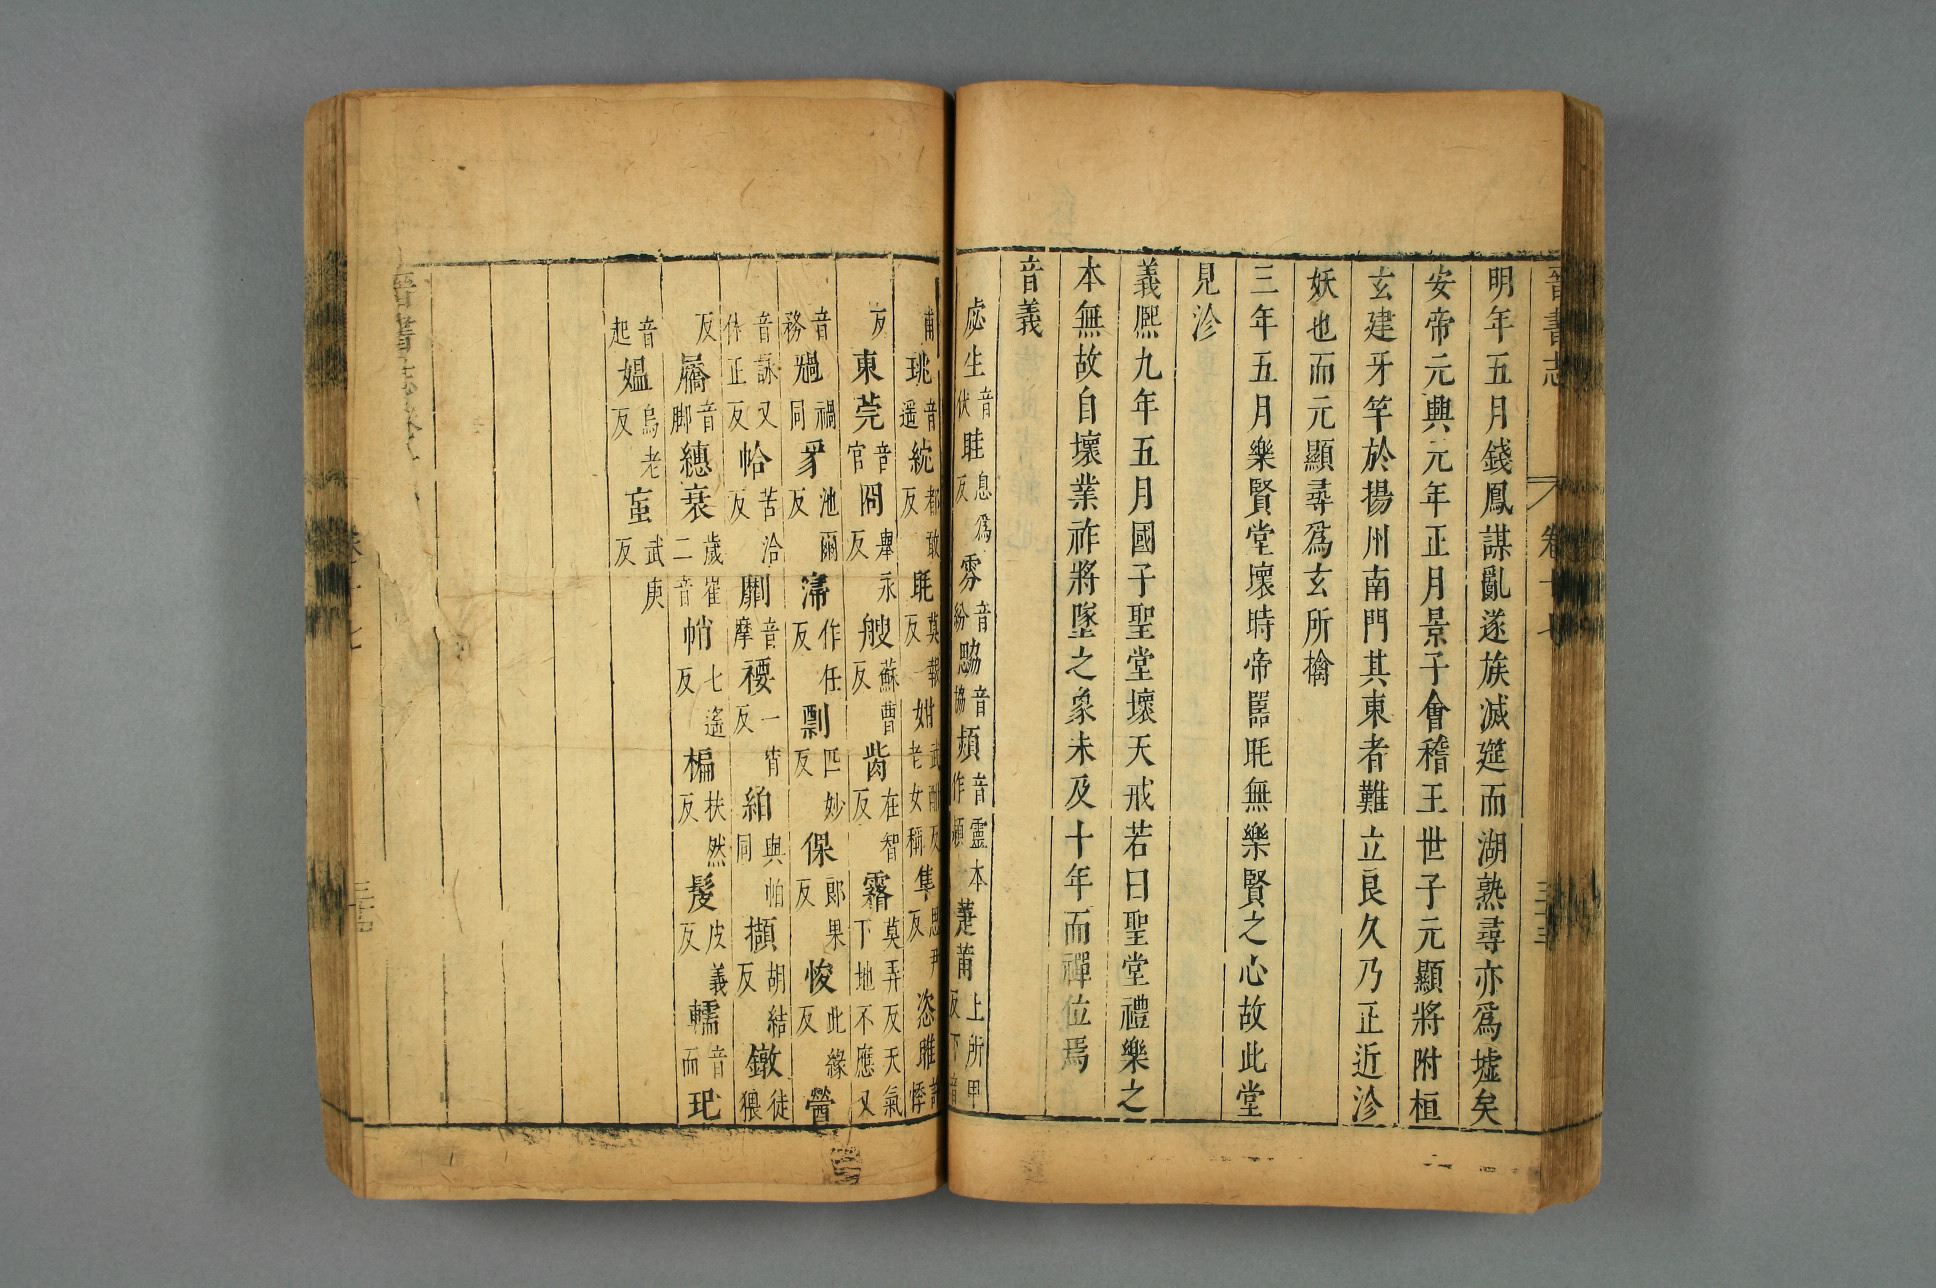 晉書志 卷十七 三十三
明年五月錢鳳謀亂遂族滅筵而湖熟尋亦爲墟矣
安帝元興元年正月景子會稽王世子元顯將討桓
玄建牙竿於揚州南門其東者難立良久乃正近沴
妖也而元顯尋爲玄所擒
三年五月樂賢堂壞時帝嚚眊無樂賢之心故此堂
見沴
義熙九年五月國子聖堂壞天戒若曰聖堂禮樂之
本無故自壞業祚將墜之象未及十年而禪位焉
音義
虙生音伏眭息爲反雰音紛勰音協頻音靈本作頻萐莆上所甲反下音
甫珧音遥紞都敢反眊莫報反一姏武酣反老女稱隼思尹反恣睢
反東莞音官冏舉永反艘蘇曹反胔在智反霿莫弄反天氣下地不應又
音務禍禍同豸池爾反瀳作任反剽匹妙反倮郎果反悛此緣反醟
音詠又作正反帢苦洽反劘音摩䙅一宵反絈與帕同擷胡結反鐓徒猥
反屩音脚繐衰歲崔二音帩七遙反楄扶然反髲皮義反轜音而玘
音起媼烏老反䖟武庚反
卷十七
三十四